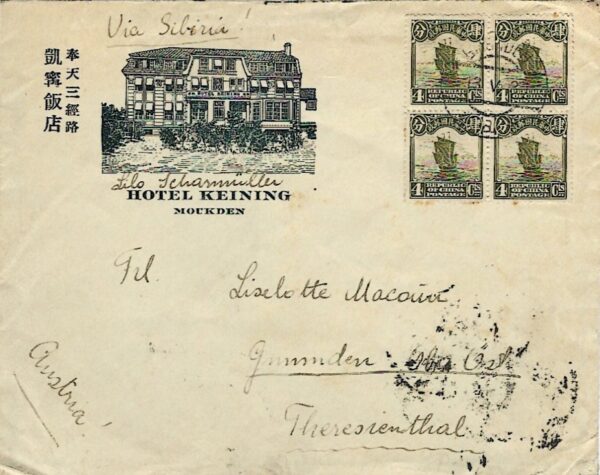 Via Sibiria!
奉天三經路
凱寗飯店
Lilo Scharmüller
HOTEL KEINING
MOUKDEN
4 REPUBLIC OF CHINA POSTAGE Cts
4 REPUBLIC OF CHINA POSTAGE Cts
4 REPUBLIC OF CHINA POSTAGE Cts
4 REPUBLIC OF CHINA POSTAGE Cts
Frl.
Liselotte
Gmunden
Theresienthal
Austria!